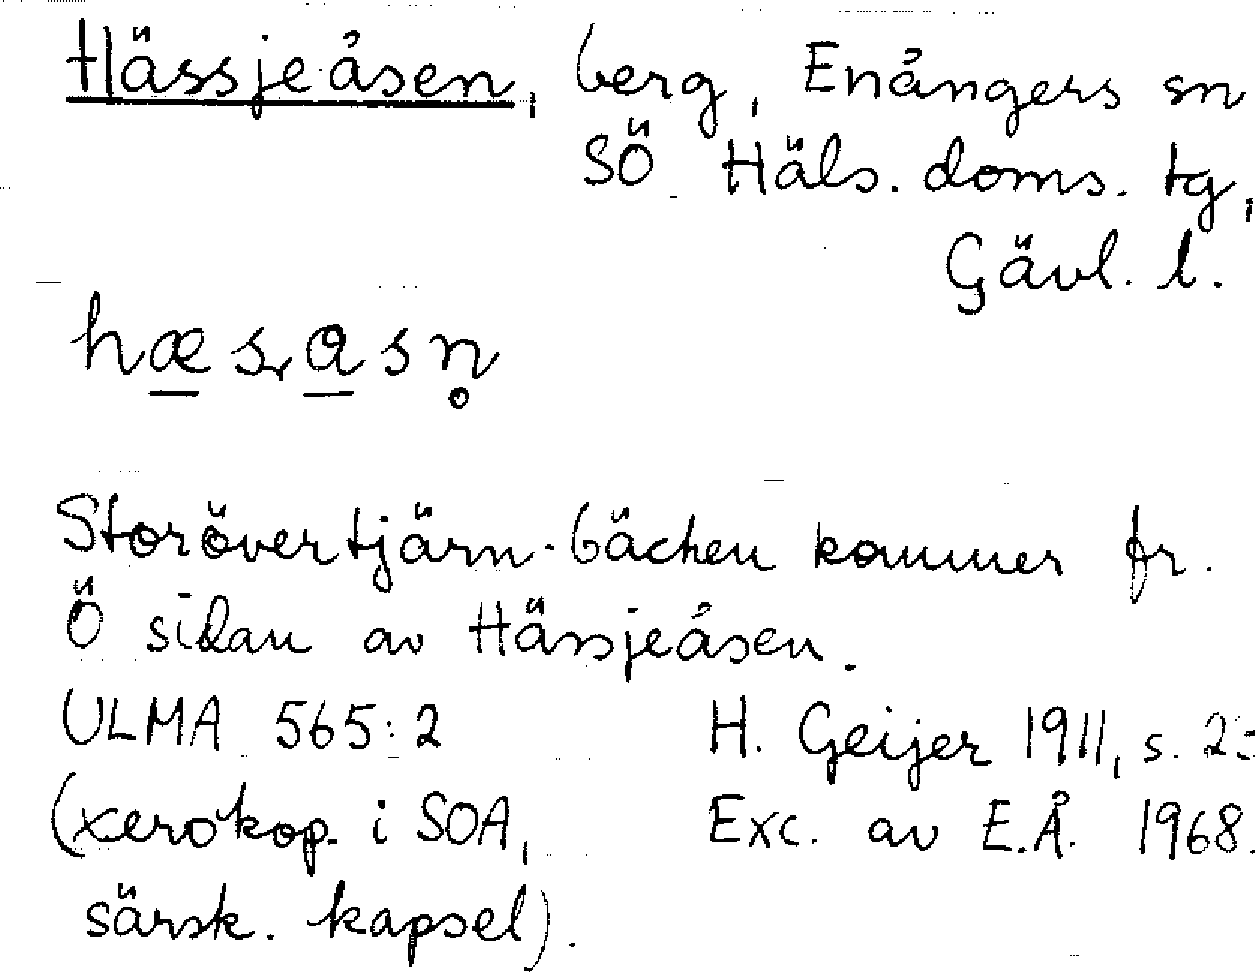 Hässjeåsen, berg, Enångers sn
SÖ Häls. doms. tg,
Gävl. l.
hæsₓasn̥
Storövertjärn-bäcken kommer fr.
Ö sidan av Hässjeåsen.
ULMA 565:2 H. Geijer 1911, s.
(xerokop. i SOA, Exc. av E.Å. 1968.
särsk. kapsel).